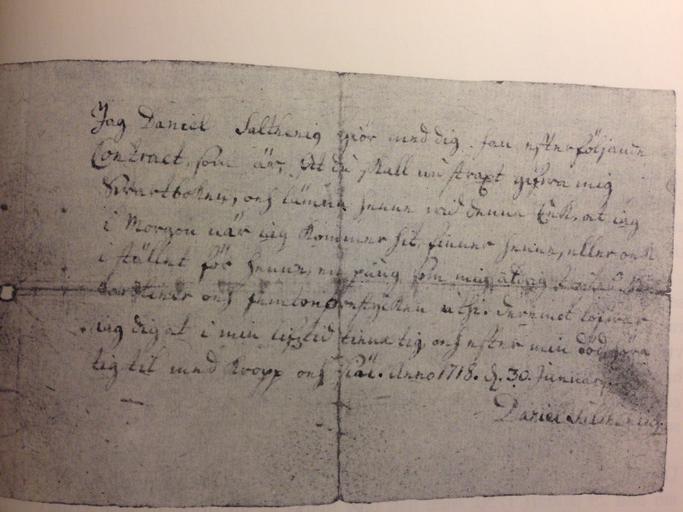 Jag Daniel Salthenig giör med dig fan efterföljande
Contract, som är, at du skall nu straxt giifva mig
Svartboken, och lämna henne wid denna Eek, at iag
i Morgon när iag kommer hit, finner henne, eller och
i stället för henne, en pung som mig altid
och femton utj. deremot lofwar
iag dig at i min lifstid tiena tig, och efter min död höra
tig til med kropp och siäl. Anno 1718. d. 30. January.
Daniel Salthenig